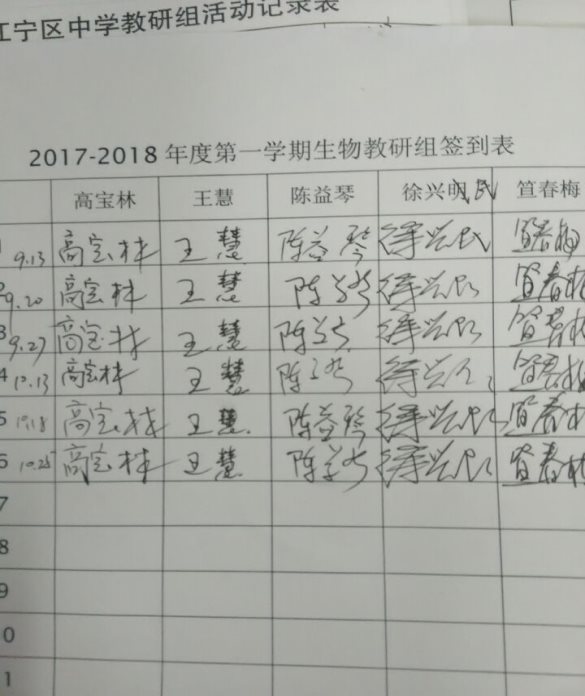 江宁区中学教研组活动记录表
2017-2018 年度第一学期生物教研组签到表
高宝林 王慧 陈益琴 徐兴明民 笪春梅
1 9.13 高宝林 王慧 陈益琴 徐兴民 笪春梅
2 9.20 高宝林 王慧 陈益琴 徐兴民 笪春梅
3 9.27 高宝林 王慧 陈益琴 徐兴民 笪春梅
4 10.13 高宝林 王慧 陈益琴 徐兴民 笪春梅
5 10.18 高宝林 王慧 陈益琴 徐兴民 笪春梅
6 10.25 高宝林 王慧 陈益琴 徐兴民 笪春梅
7
8
9
0
1